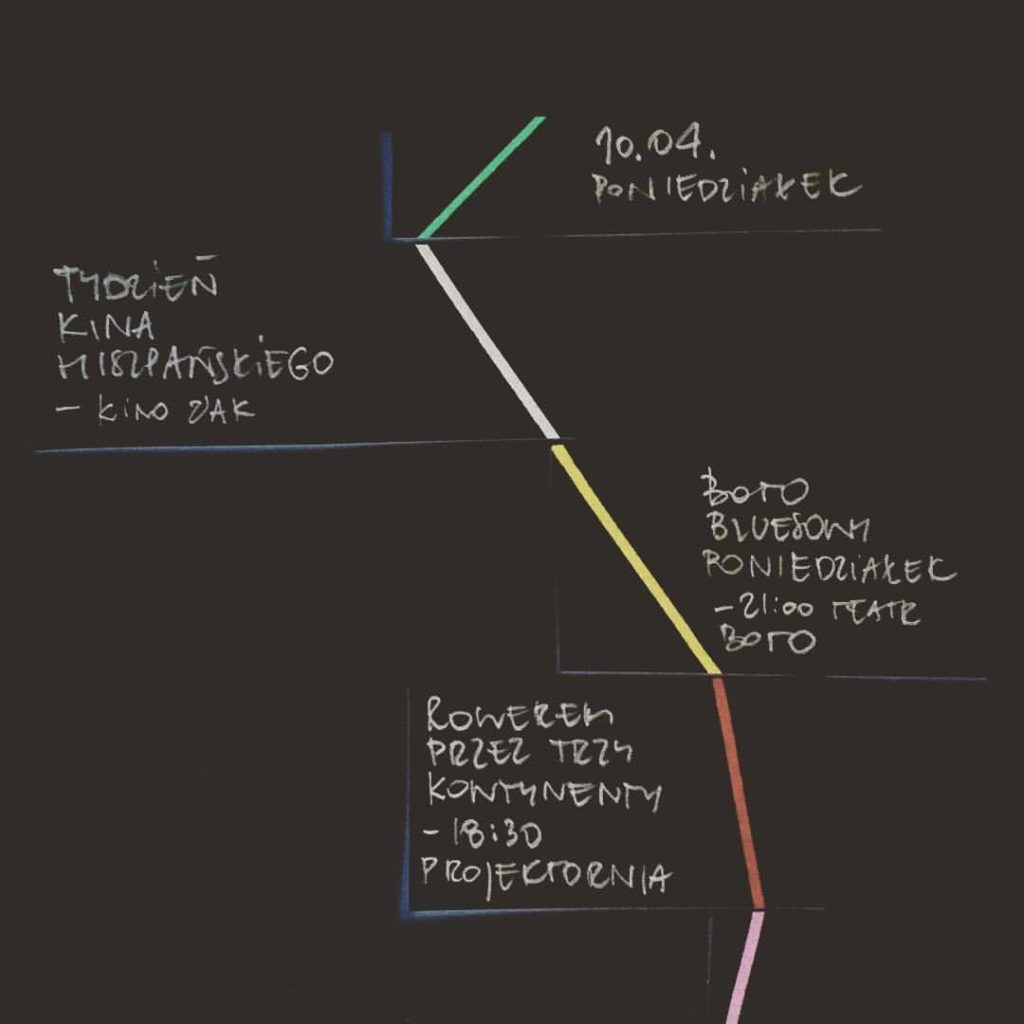 10.04.
PONIEDZIAŁEK
TYDZIEŃ
KINA
HISZPAŃSKIEGO
- KINO ŻAK
BOTO
BLUESOWY
PONIEDZIAŁEK
- 21:00 TEATR
BOTO
ROWEREM
PRZEZ TRZY
KONTYNENTY
- 18:30
PROJEKTORNIA